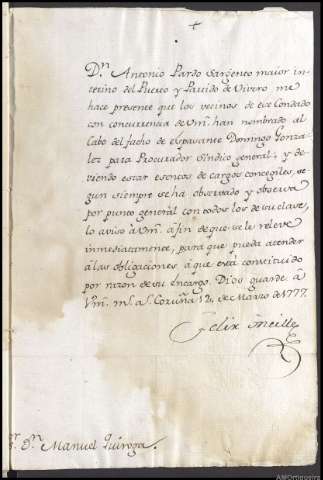 +
Dn. Antonio Pardo Sargento maior in-
terino del Puerto y Partido de Vivero me
hace presente que los vecinos de ese Condado
con concurrencia de Vm. han nombrado al
Cabo del facho de Espasante Domingo Gonza-
lez para Procurador Sindico general, y de-
viendo estar esentos de cargos concegiles, se-
gun siempre se há observado y observa
por punto general con todos los de su clase,
lo aviso à Vm. à fin de que se le releve
inmediatamente, para que pueda atender
à las obligaciones, à que està constituido
por razon de su encargo. Dios guarde à
Vm. ms. as. Coruña 12, de Marzo de 1777.
Felix ONeille
Sr. Dn. Manuel Quiroga.
AMOrtigueira